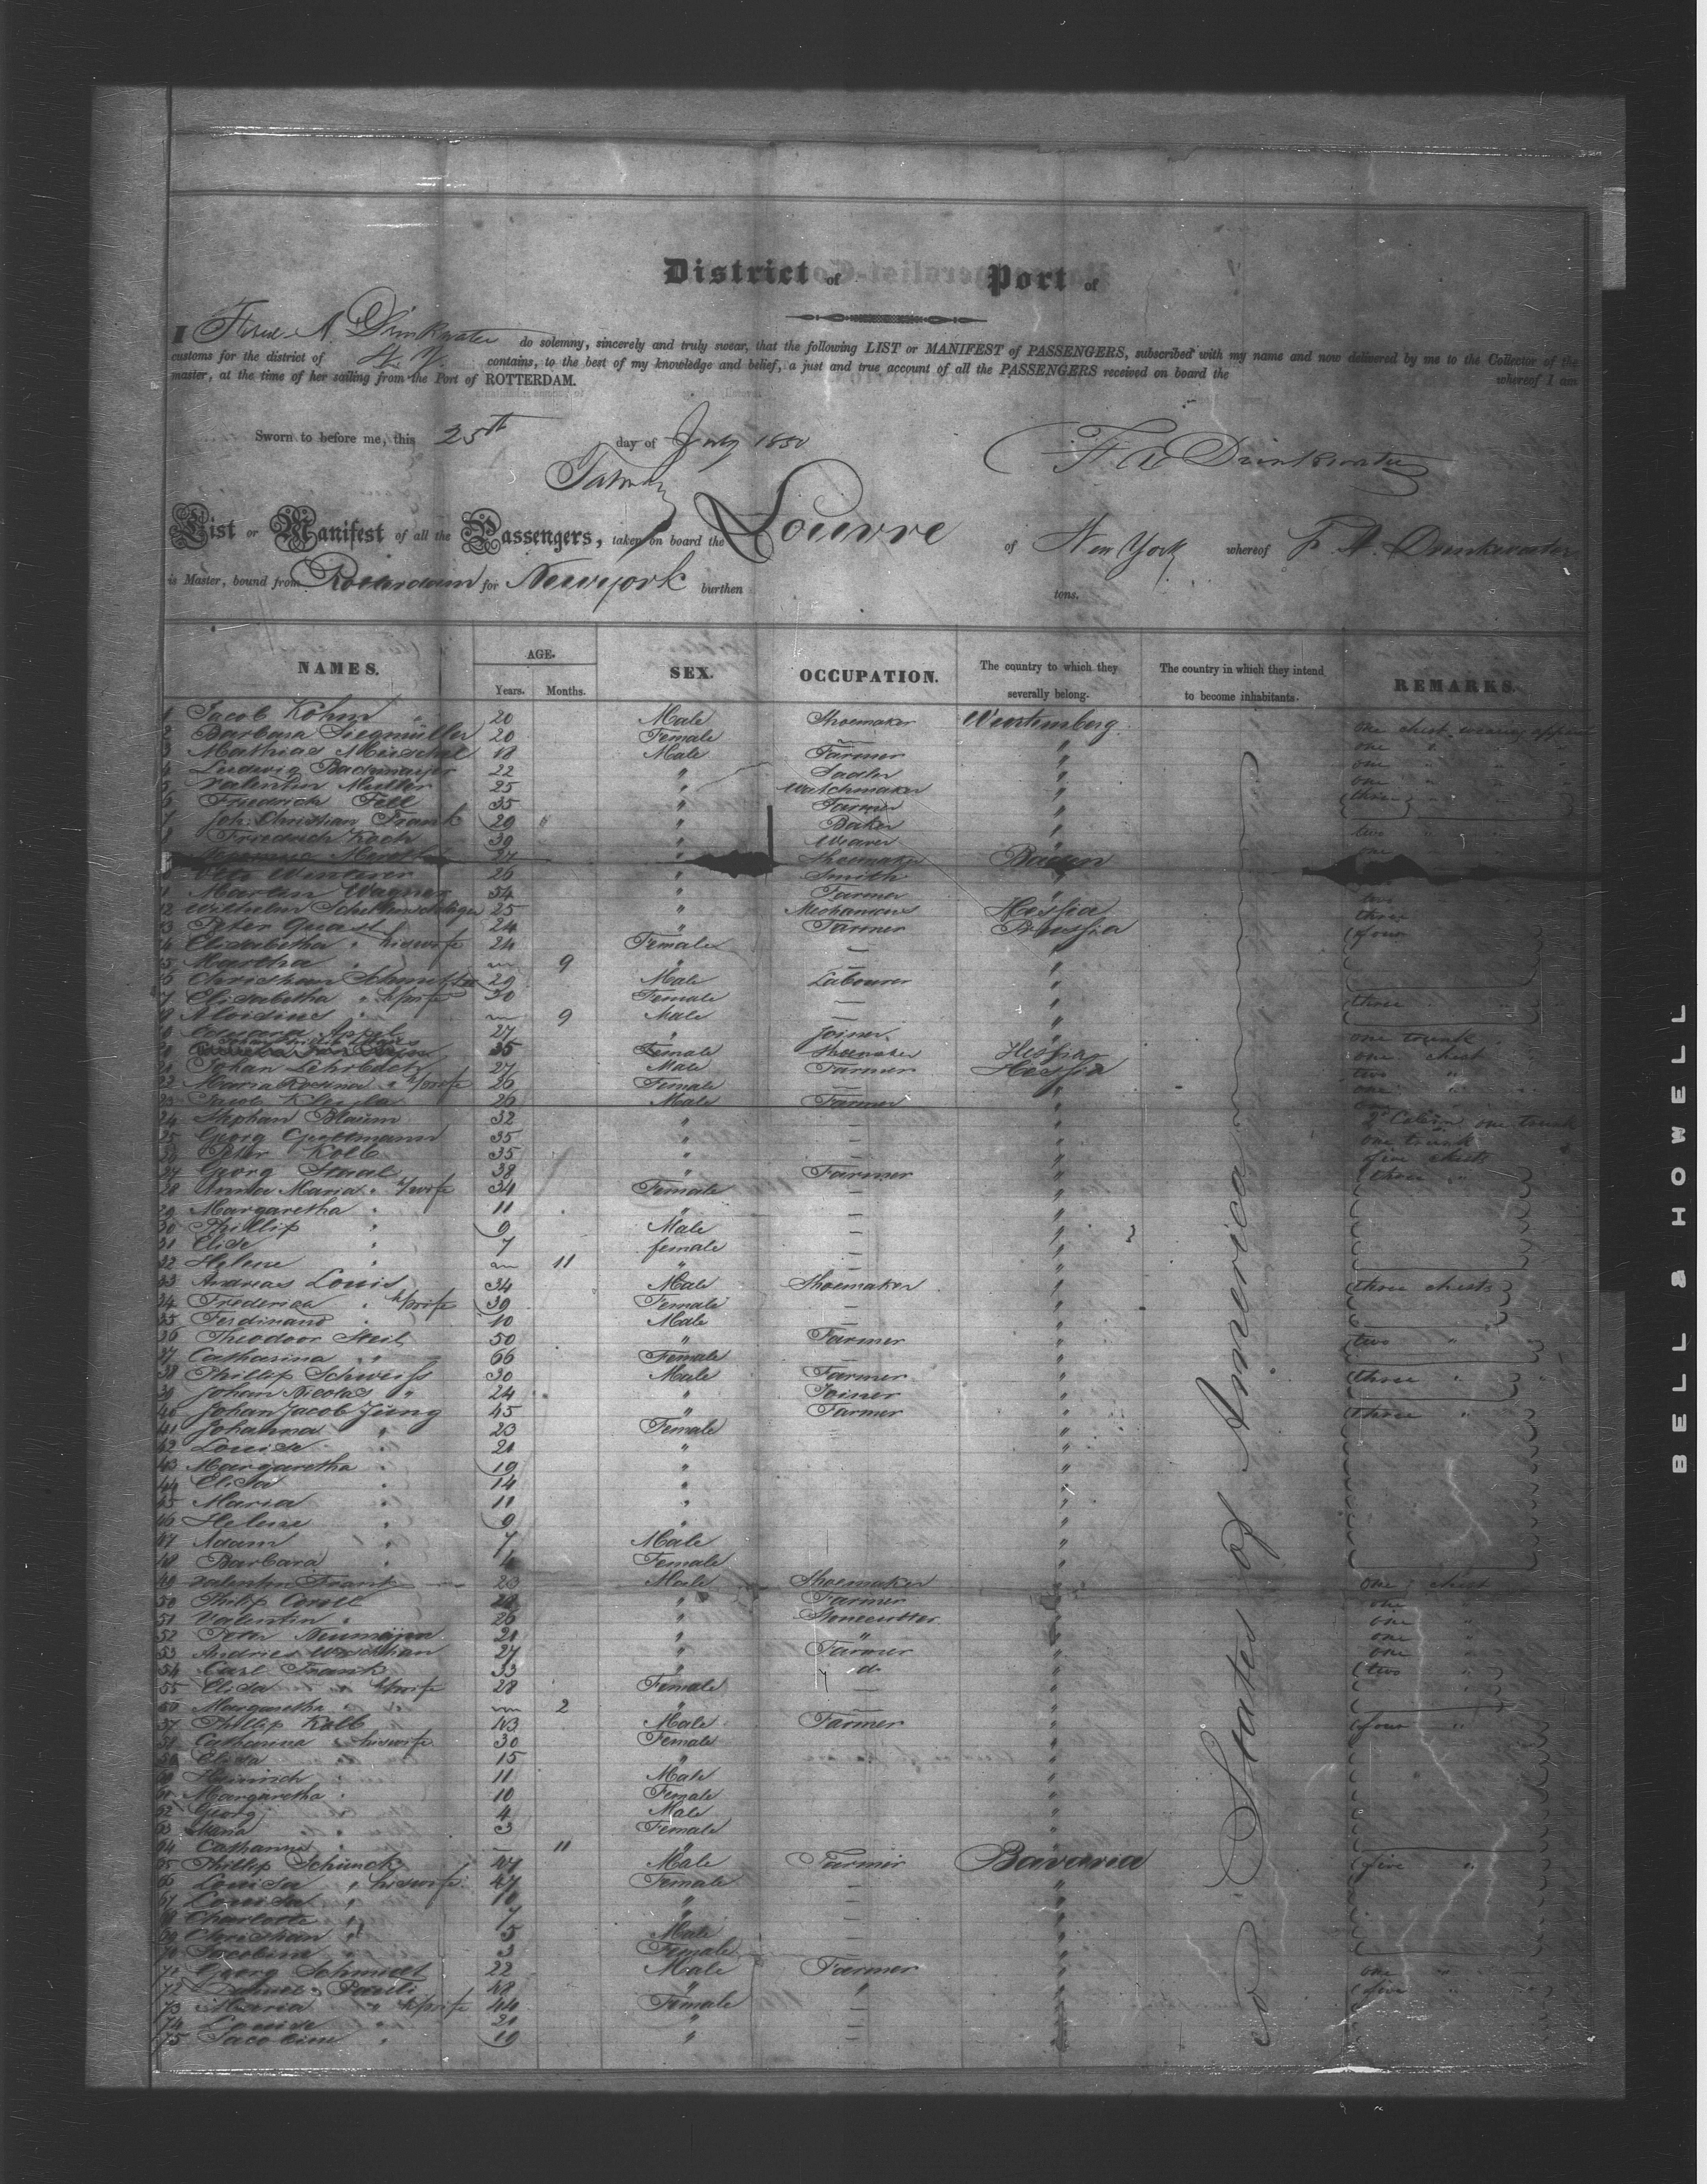 District of Port of
I A. Drinkwater do solemny, sincerely and truly swear, that the following LIST or MANIFEST of PASSENGERS, subscribed with my name and now delivered by me to the Collector of the
customs for the district of N.Y. contains, to the best of my knowledge and belief, a just and true account of all the PASSENGERS received on board the whereof I am
master, at the time of her sailing from the Port of ROTTERDAM.
Sworn to before me, this 25th day of July 1850 Drinkwater
List or Manifest of all the Passengers, taken on board the Louvre of New York whereof F. A. Drinkwater
is Master, bound from Rotterdam for Newyork burthen tons.
NAMES. AGE. SEX. OCCUPATION. The country to which they severally belong. The country in which they intend to become inhabitants. REMARKS.
Years. Months.
1 Jacob Kohm 20 Male Shoemaker Wurtemberg one chest wearing
2 Barbara Siegmüller 20 Female — " one " "
3 Mathias 18 Male Farmer " one " "
4 Ludwig Backmayer 22 " Sadler " one " "
5 Valentin Muller 25 " Watchmaker " three
6 Friedrich Fell 35 " Farmer "
7 Joh. Christian Frank 29 " Baker " two " "
8 Friedrich Koch 39 " Weaver " one
27 " Shoemaker Baden
Otto Winterer 26 " Smith "
11 Martin Wagner 54 " Farmer " two
12 Wilhelm 25 " Hessia three
13 Peter Quast 24 " Farmer Prussia four
14 Elisabetha " his wife 24 Female — "
15 Martha " 9 " — "
16 Christian 29 Male Labourer "
17 Elisabetha " h/wife 30 Female — " three "
18 Aloisius " 9 Male — "
19 Appel 27 " Joiner " one trunk
20 35 Female Shoemaker Hessia one chest
21 Johan Lehrbach 27 Male Farmer Hessia two "
22 Maria Rosina " h/wife 26 Female — " one "
23 Jacob 26 Male Farmer "
24 Stephan Blaum 32 " — " one trunk
25 Georg 35 " — " one trunk
26 Peter Kolb 35 " — " five chests
27 Georg Staal 38 " Farmer " three "
28 Anna Maria " h/wife 34 Female — "
29 Margaretha " 11 " — "
30 Phillip " 9 Male — "
31 Elise " 7 female — "
32 Helene " 11 " — "
33 Andreas Louis 34 Male Shoemaker " three chests
34 Frederica " h/wife 39 Female — "
35 Ferdinand " 10 Male — "
36 Theodoor Steil 50 " Farmer " two "
37 Catharina " 66 Female — "
38 Phillip Schweiss 30 Male Farmer " three "
39 Johan Nicolas " 24 " Joiner "
40 Johan Jacob Jüng 45 " Farmer " three "
41 Johanna " 23 Female "
42 Louise " 21 " "
43 Margaretha " 19 " "
44 Elisa " 14 " "
45 Maria " 11 " "
46 Helene " 9 " "
47 Adam " 7 Male "
48 Barbara " Female "
49 Valentin Frank 23 Male Shoemaker " one chest
50 Philip " Farmer " one "
51 Valentin " 26 " Stonecutter " one "
52 Peter Neumann 21 " " " one "
53 Andries 27 " Farmer " one "
54 Carl Frank 33 " d " two "
55 Elisa " h/wife 28 Female — "
56 Margaretha " 2 " — "
57 Phillip Kolb 43 Male Farmer " four "
58 Catharina " his wife 30 Female "
59 Elisa " 15 " "
60 Heinrich " 11 Male "
61 Margaretha " 10 Female "
62 Georg 4 Male "
63 3 Female "
64 Catharina " 11 " "
65 Phillip Schunck 47 Male Farmer Bavaria five "
66 Louisa " his wife 47 Female — "
67 Louisa " " — "
68 Charlotte " 7 " — "
69 Christian " 5 Male — "
70 Jacobine " 3 Female — "
71 Georg Schmidt 22 Male Farmer " one "
72 Pauli 48 " " " five "
73 Maria " h/wife 44 Female — "
74 Louise " 21 " — "
75 Jacobine " 19 " — "
States of America
BELL & HOWELL